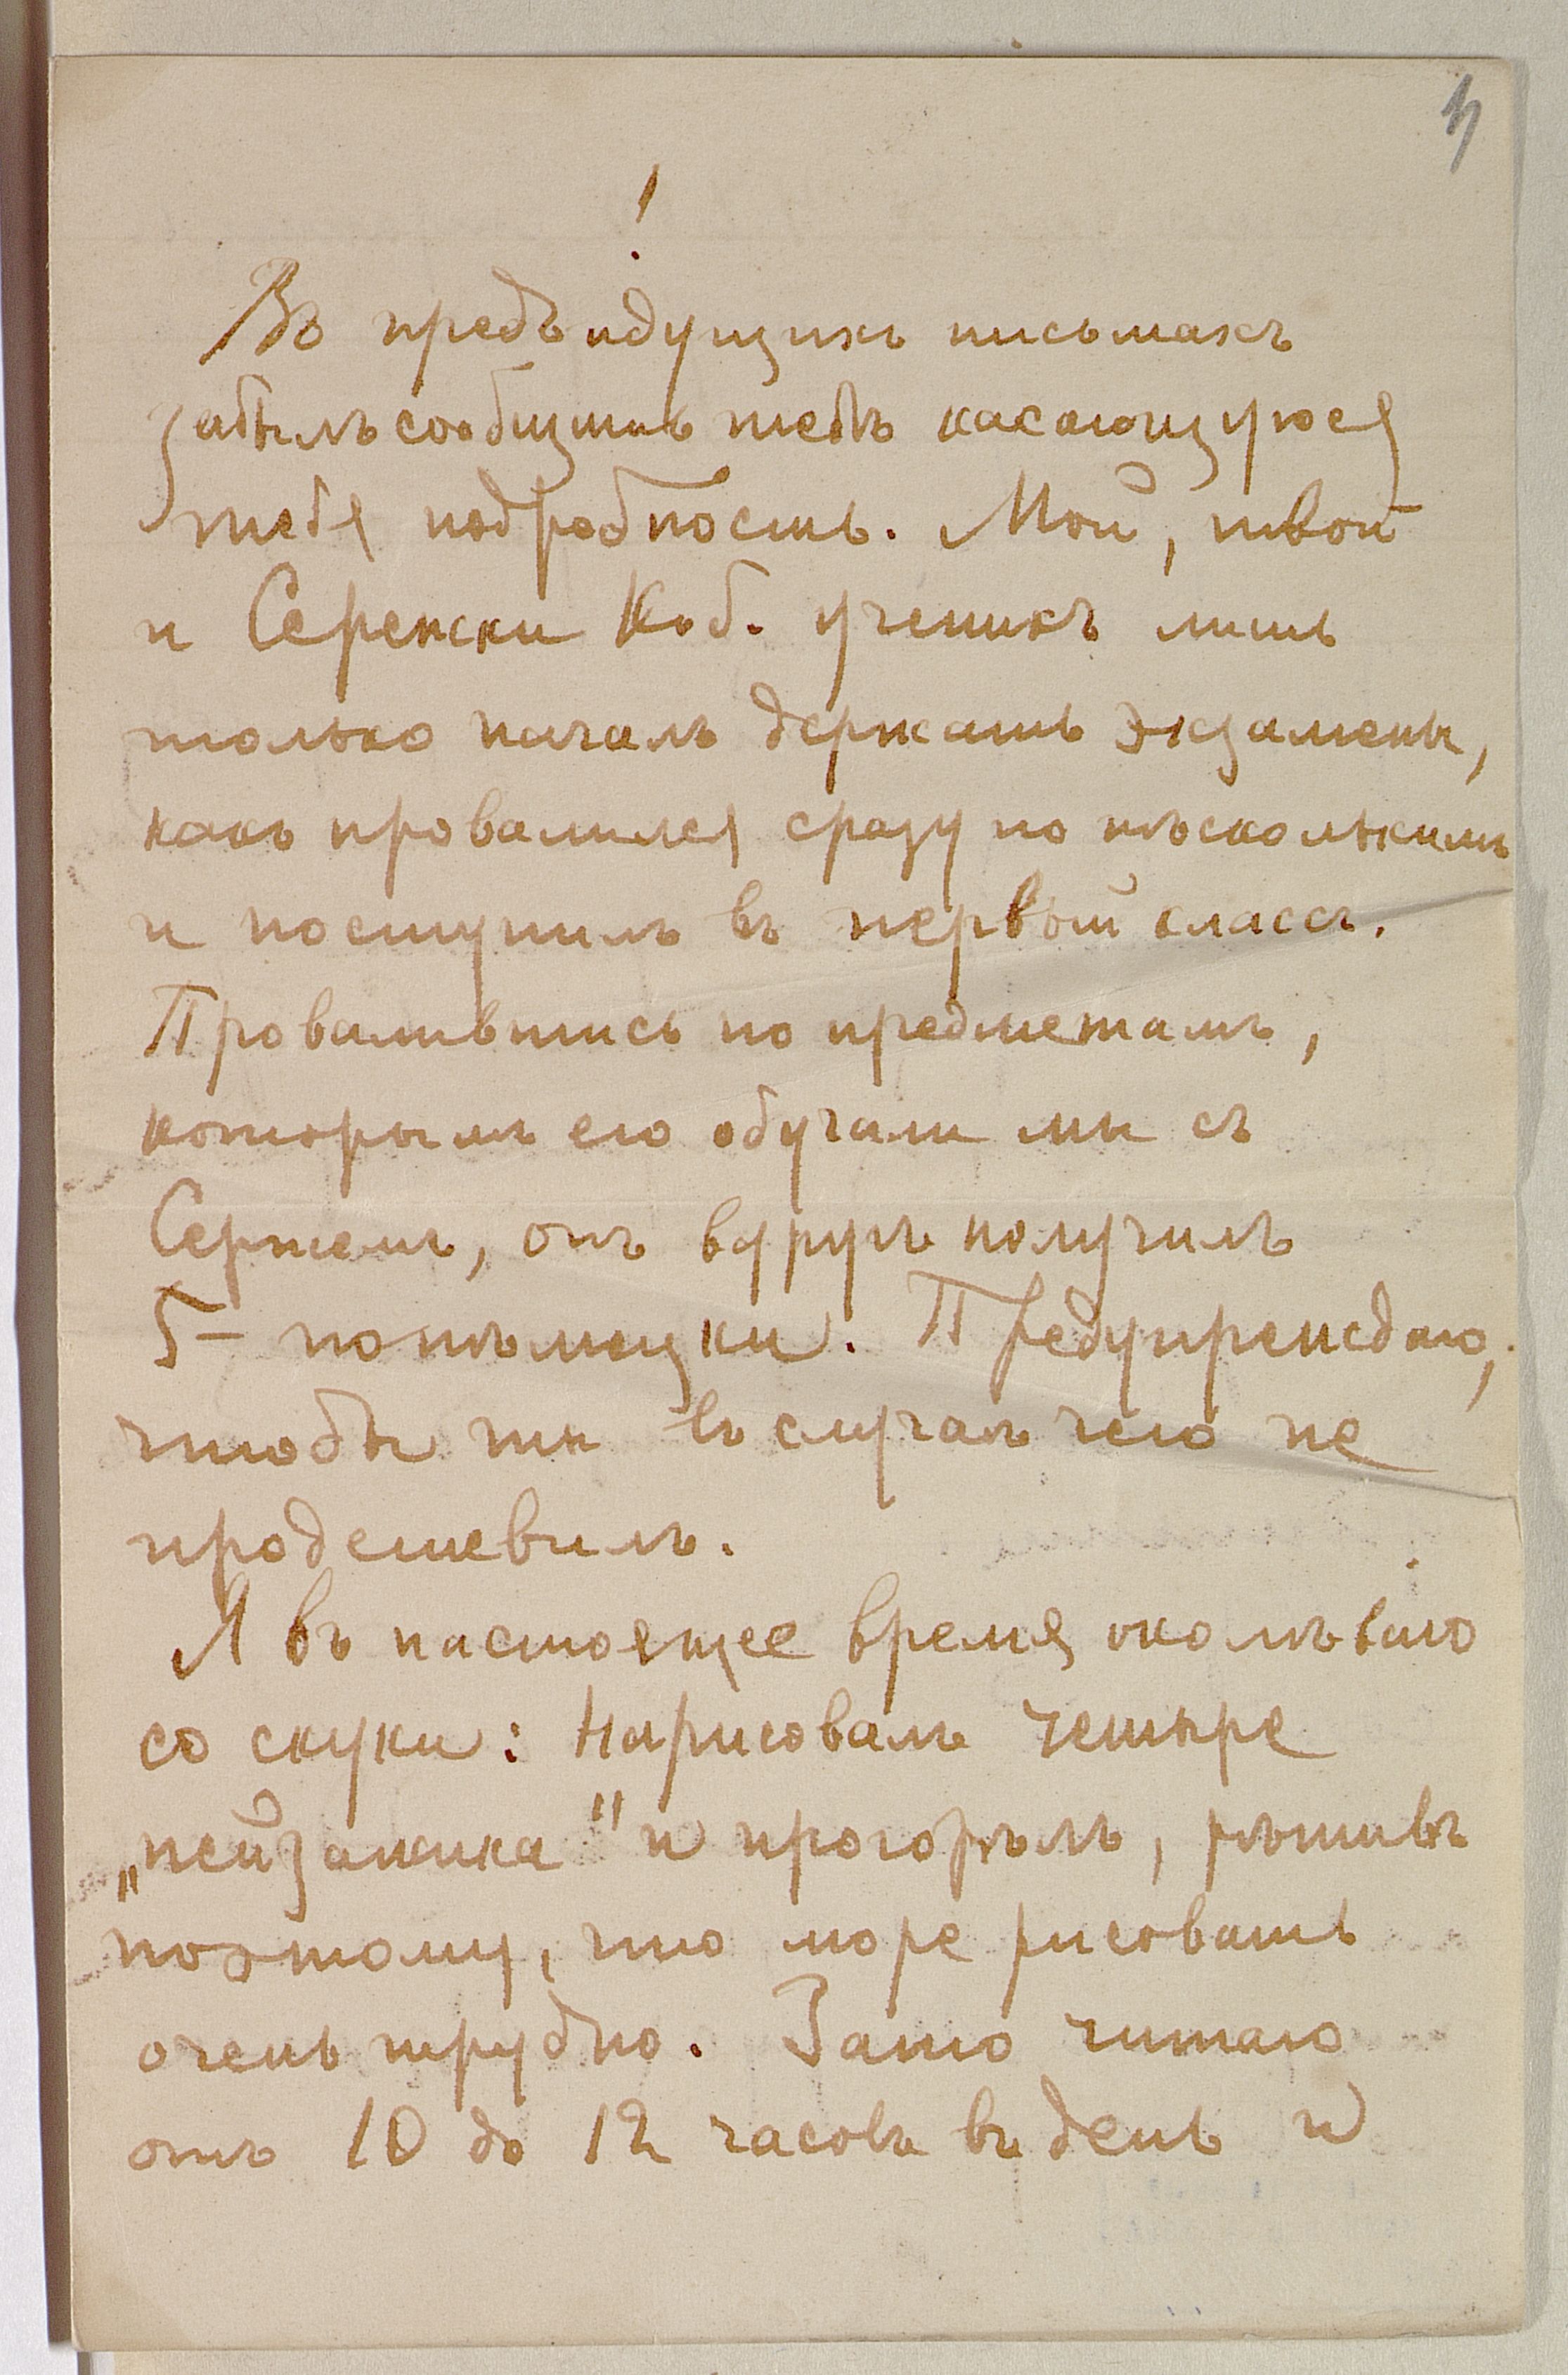 3
!
Въ предъидущихъ письмахъ
забылъ сообщить тебѣ касающуюся
тебя подробность. Мой, твой
и Сережки Коб. ученикъ лишь
только началъ держать экзамены,
какъ провалился сразу по нѣсколькимъ
и поступилъ въ первый классъ.
Провалившись по предметамъ,
которымъ его обучали мы съ
Сержемъ, онъ вдругъ получилъ
5– понѣмецки. Предупреждаю,
чтобы ты въ случаѣ чего не
продешевилъ.
Я въ настоящее время околѣваю
со скуки: нарисовалъ четыре
„пейзажика" и прогорѣлъ, рѣшивъ
поэтому, что море рисовать
очень трудно. Зато читаю
отъ 10 до 12 часовъ въ день и